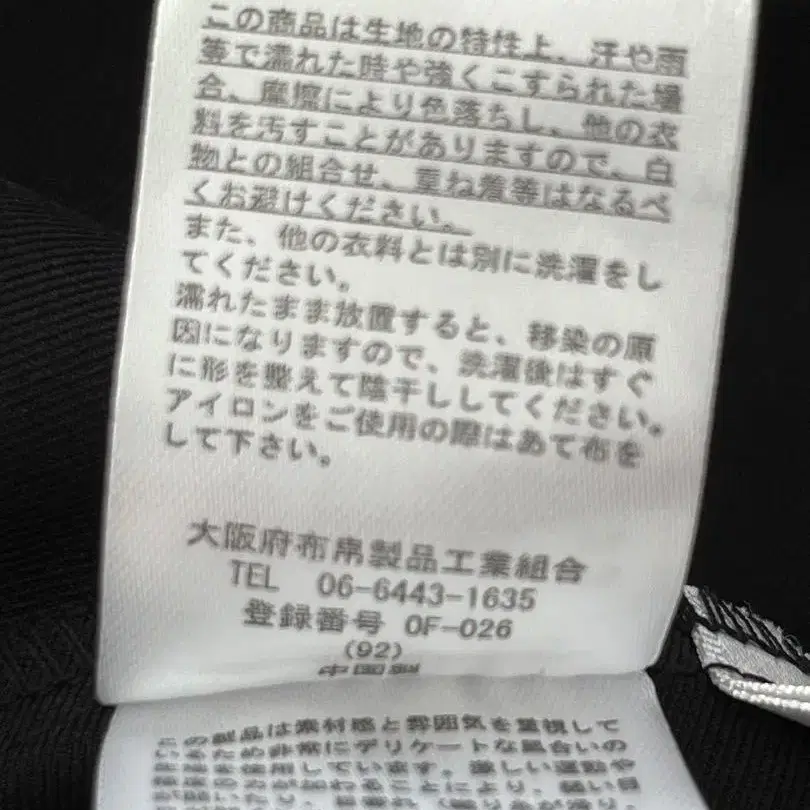 この商品は生地の特性上、汗や雨
等で濡れた時や強くこすられた場
合、摩擦により色落ちし、他の衣
料を汚すことがありますので、白
物との組合せ、重ね着等はなるべ
くお避けください。
また、他の衣料とは別に洗濯をし
てください。
濡れたまま放置すると、移染の原
因になりますので、洗濯後はすぐ
に形を整えて陰干ししてください。
アイロンをご使用の際はあて布を
して下さい。
大阪府布帛製品工業組合
TEL 06-6443-1635
登録番号 OF-026
(92)
中国製
この製品は素材感と雰囲気を重視して
いるため非常にデリケートな風合いの
生地を使用しています。激しい運動や
極度の力が加わることにより、縫い目